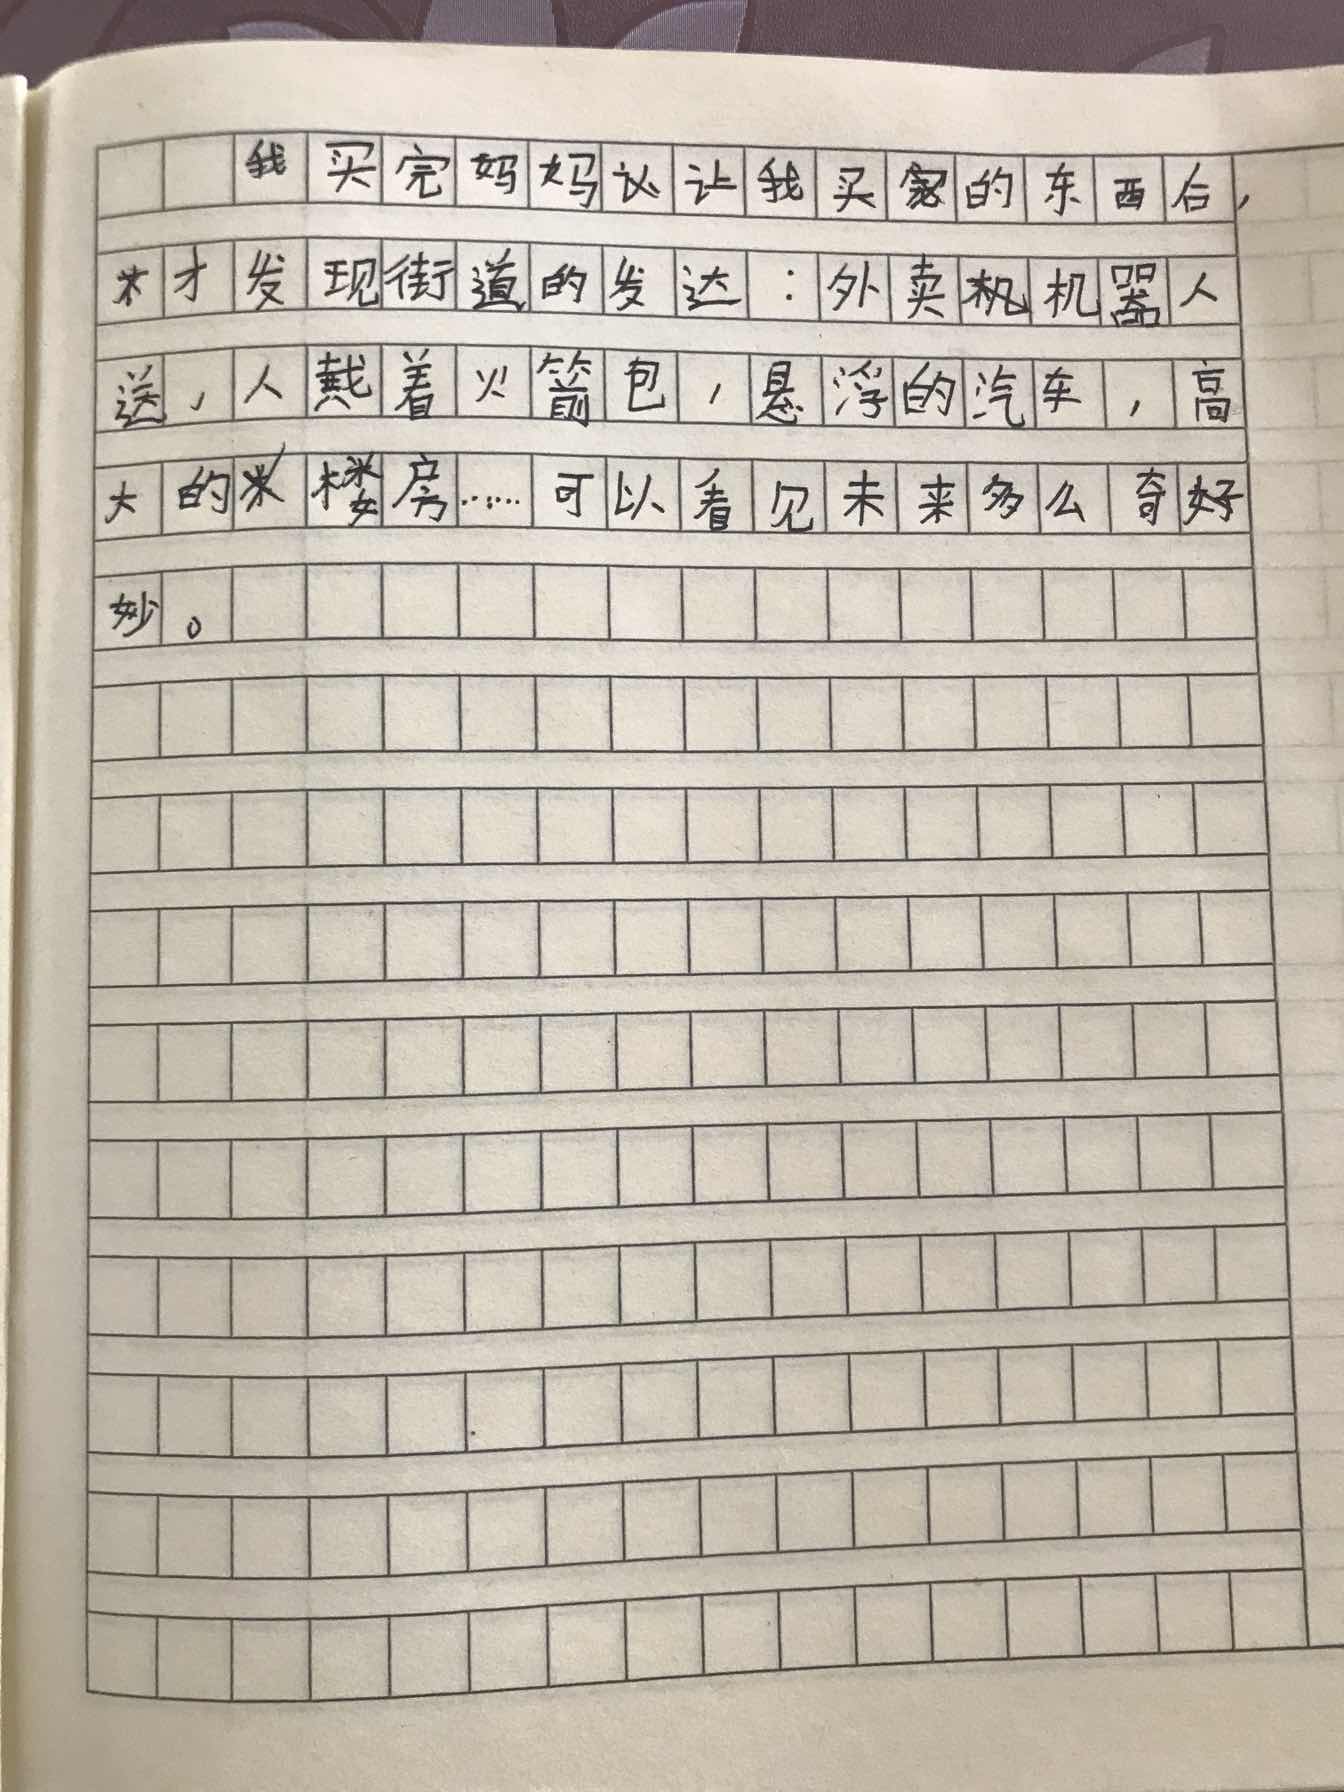 我买完妈妈让我买的东西后，
才发现街道的发达：外卖机器人
送，人戴着火箭包，悬浮的汽车，高
大的楼房……可以看见未来多么奇
妙。